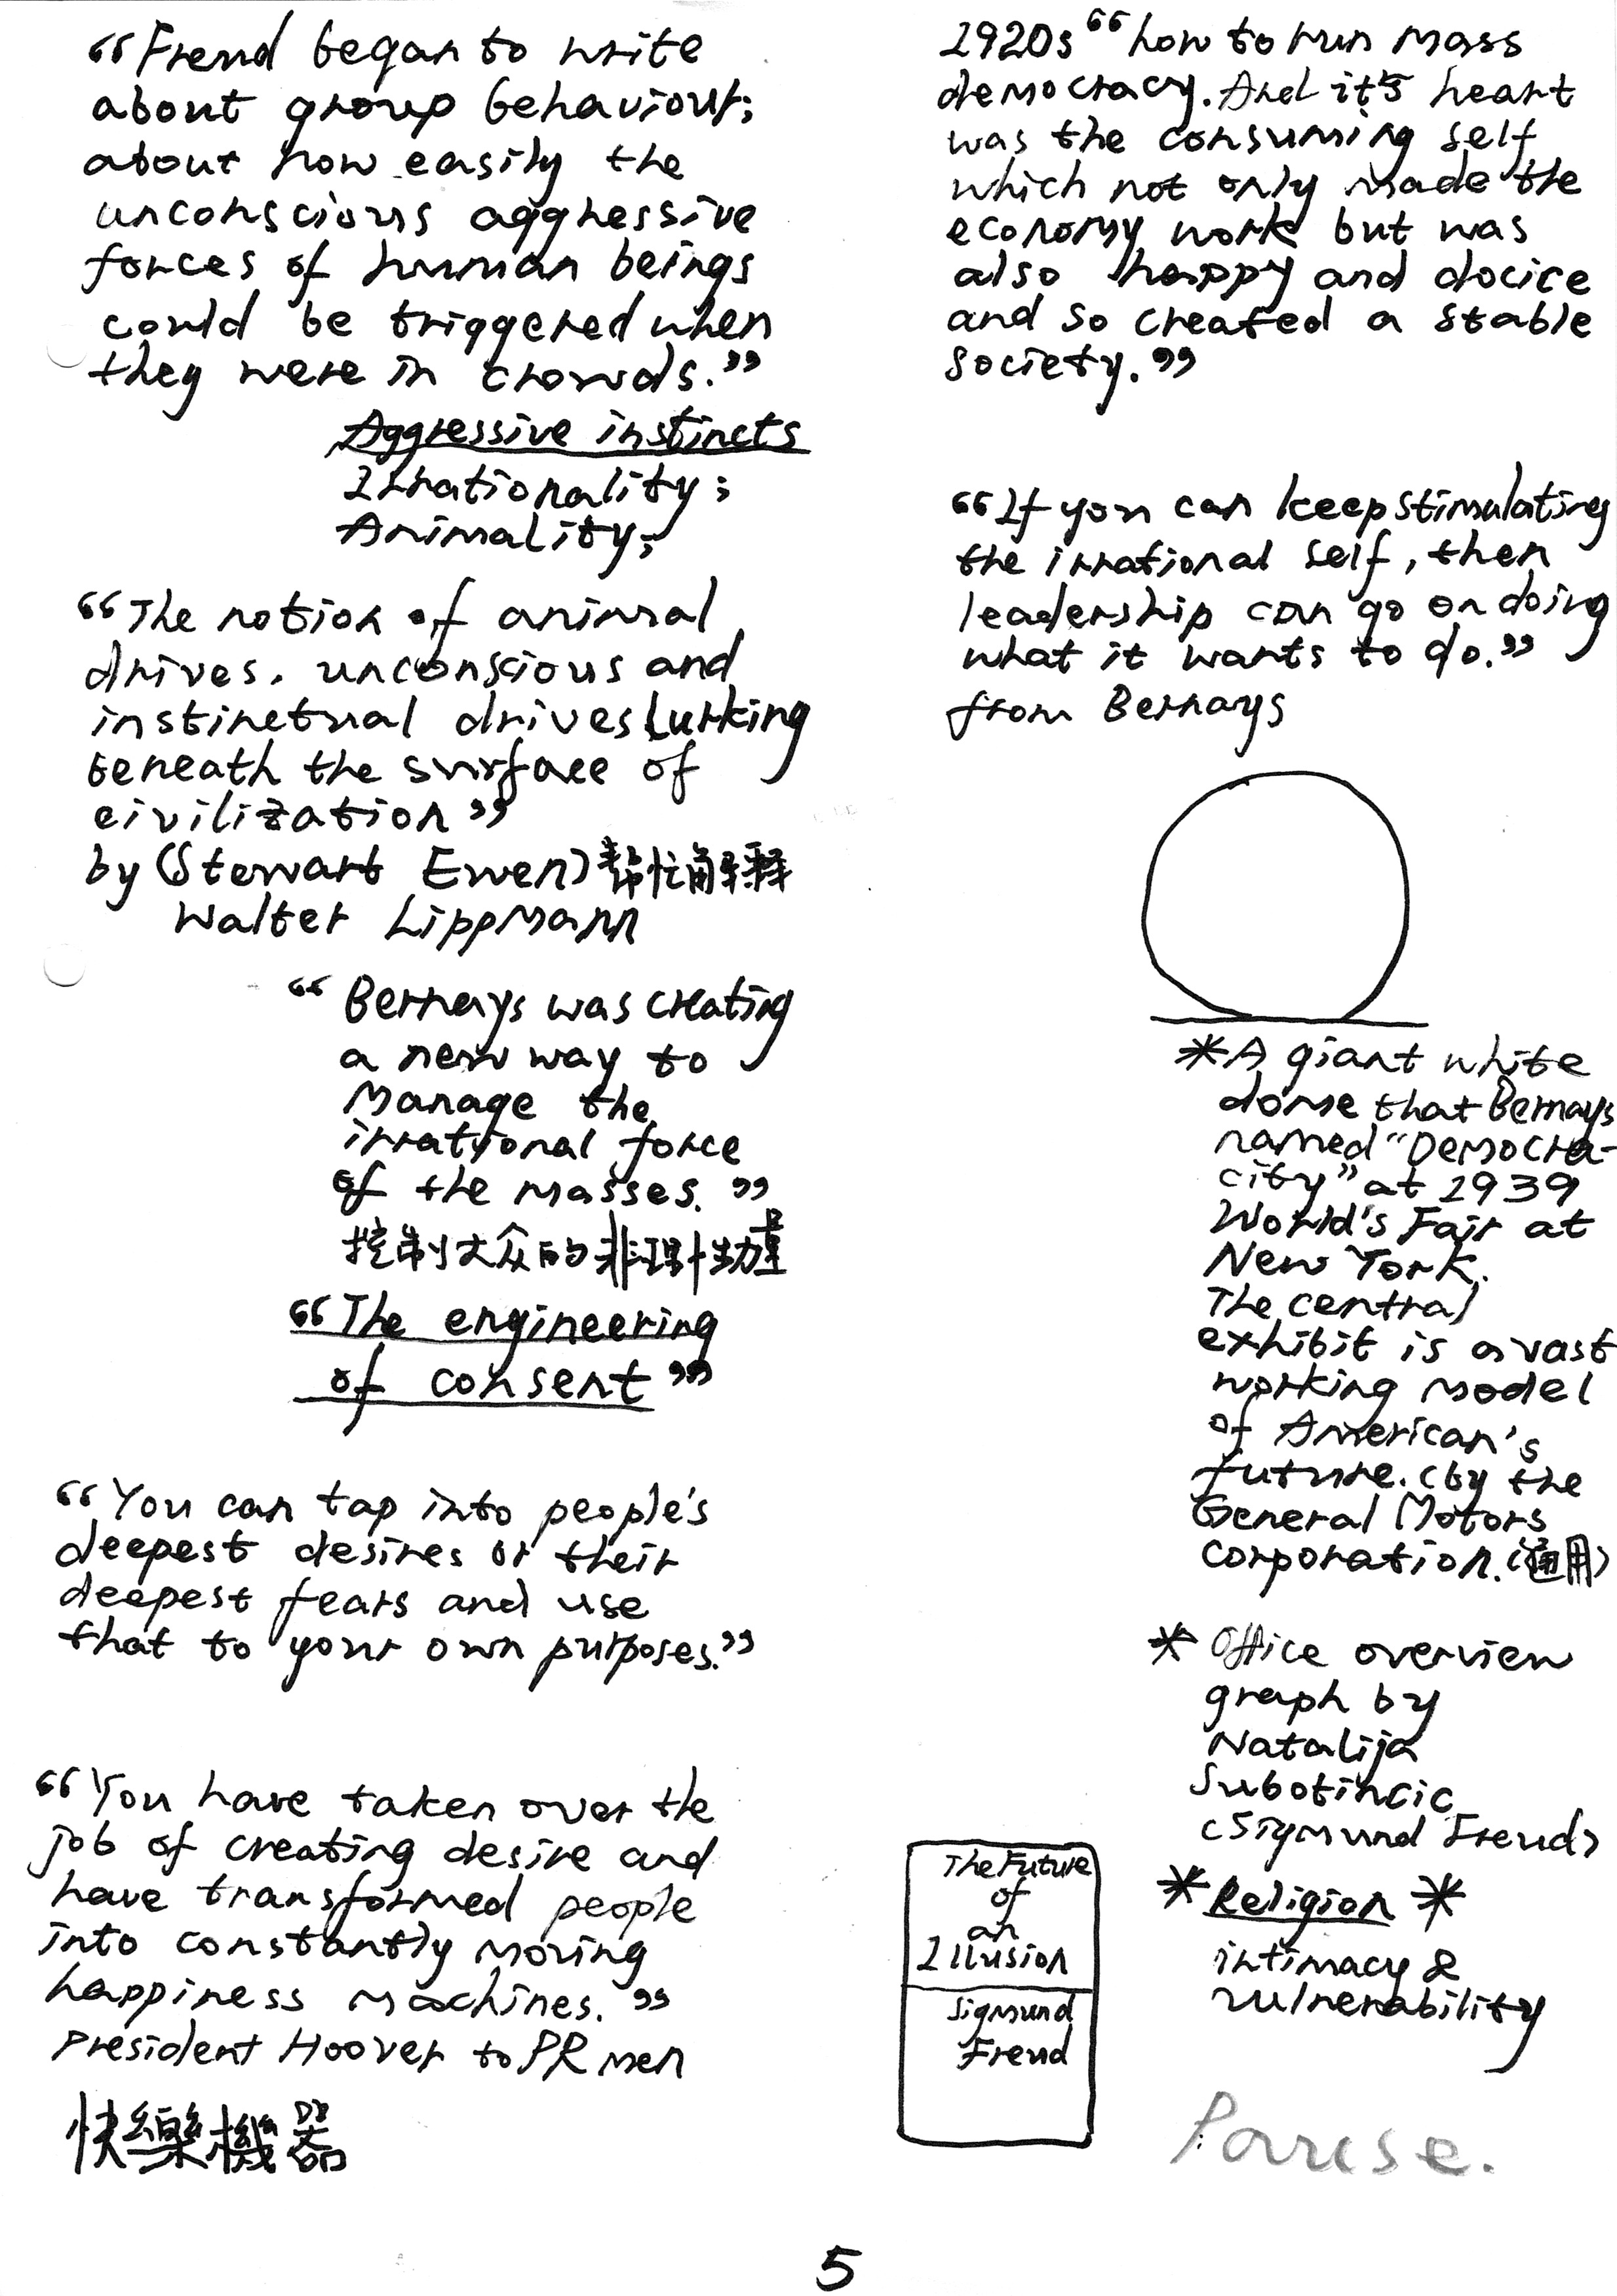 “Freud began to write
about group behaviour;
about how easily the
unconscious aggressive
forces of human beings
could be triggered when
they were in crowds.”
Aggressive instincts
Irrationality;
Animality;
“The notion of animal
drives. unconscious and
instinctual drives lurking
beneath the surface of
civilization”
by (Stewart Ewen) 帮忙解释
Walter Lippmann
“Bernays was creating
a new way to
manage the
irrational force
of the masses.”
控制大众的非理性力量
“The engineering
of consent”
“You can tap into people's
deepest desires or their
deepest fears and use
that to your own purposes.”
“You have taken over the
job of creating desire and
have transformed people
into constantly moving
happiness machines.”
President Hoover to PR men
快樂機器
1920s “how to run mass
democracy. And it's heart
was the consuming self
which not only made the
economy work but was
also happy and docile
and so created a stable
society.”
“If you can keep stimulating
the irrational self, then
leadership can go on doing
what it wants to do.”
from Bernays
*A giant white
dome that Bernays
named “Democra-
city” at 1939
World's Fair at
New York.
The central
exhibit is a vast
working model
of American's
future. (by the
General Motors
corporation. (通用)
* Office overview
graph by
Natalija
Subotincic
(Sigmund Freud)
* Religion *
intimacy &
vulnerability
The Future
of
an
Illusion
Sigmund
Freud
Pause.
5